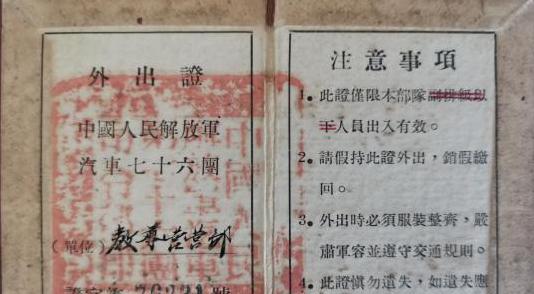 外出證
中國人民解放軍
汽車七十六團
(單位)教導营营部
注意事項
1. 此證僅限本部隊副排級以
下人員出入有效。
2. 請假持此證外出,銷假繳
回。
3. 外出時必須服裝整齊,嚴
肅軍容並遵守交通規則。
4. 此證愼勿遺失,如遺失應